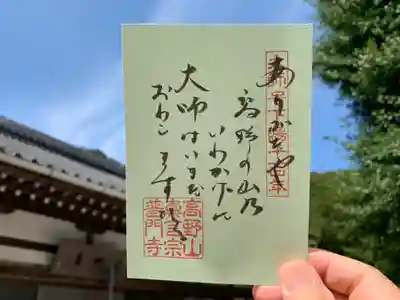 ありがたや
高野の山乃
いわかげに
大師はいまだ
おわしますなる
高野山
真言宗
普門寺